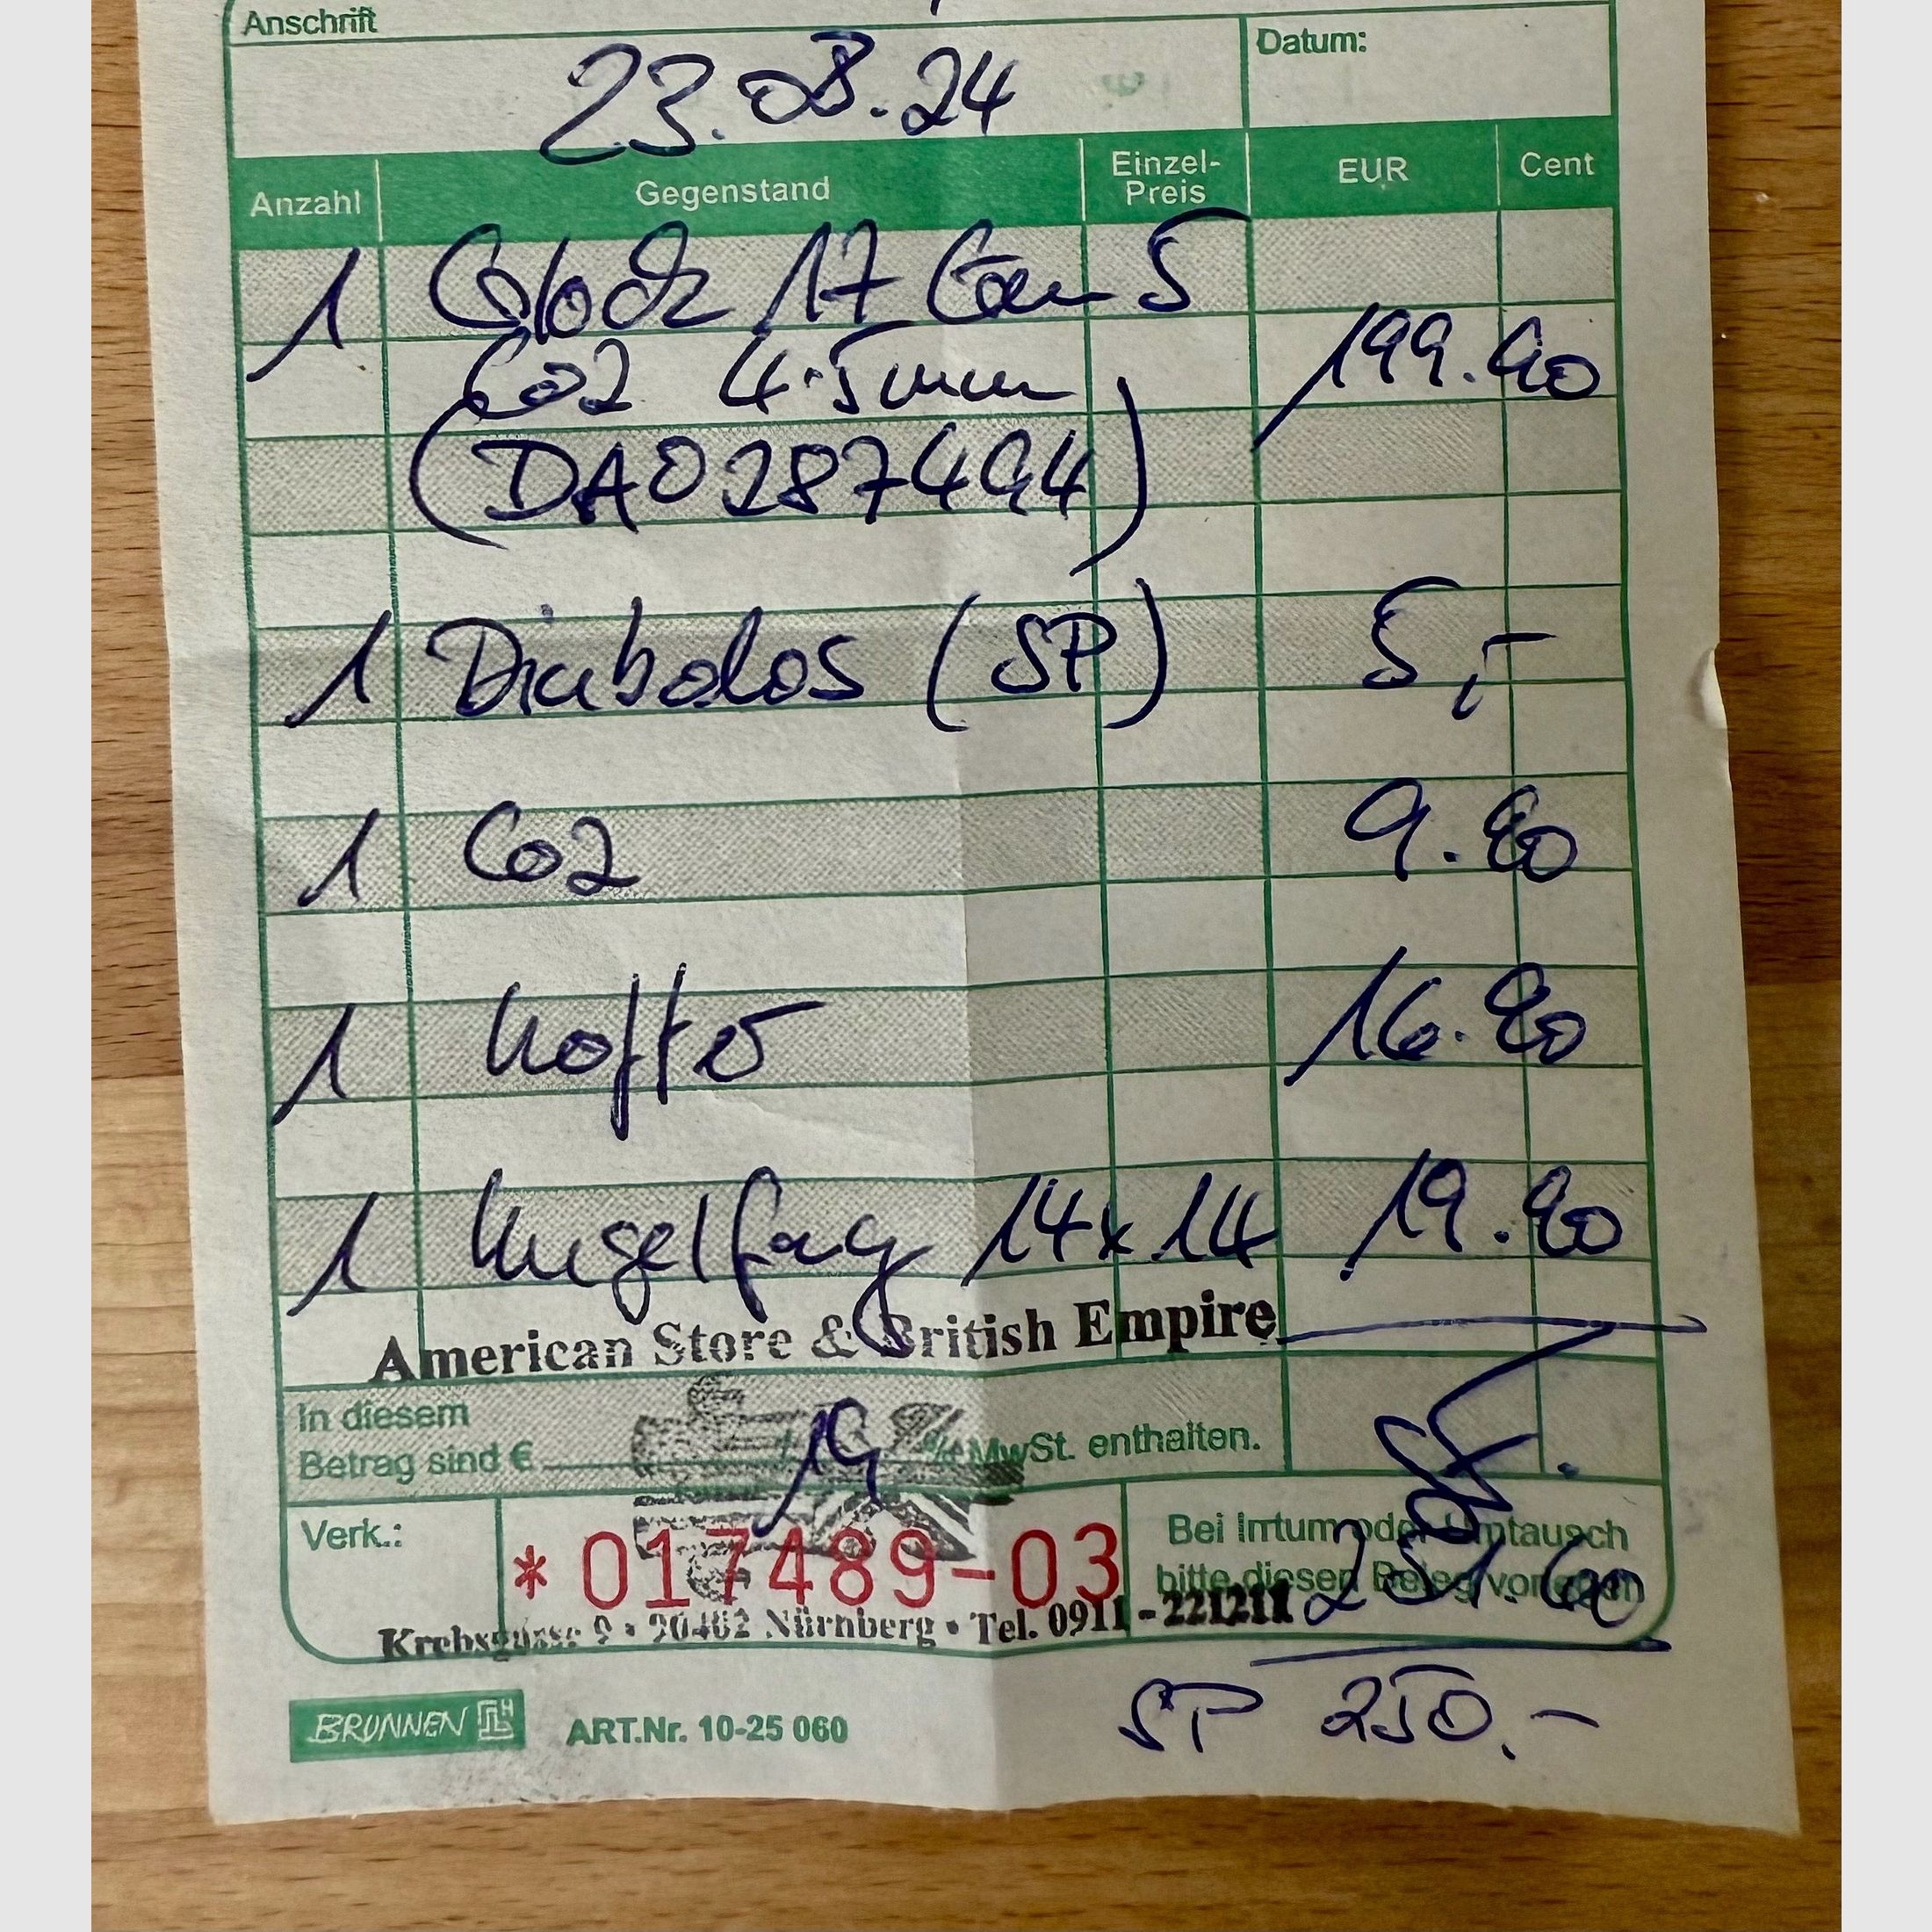 Anschrift
23.08.24
Datum:
Anzahl Gegenstand Einzel-Preis EUR Cent
1 Glock 17 Gen 5
Co2 4.5mm 199.90
(DA0287494)
1 Diabolos (SP) 5,-
1 Co2 9.90
1 Koffer 16.90
1 Kugelfang 14x14 19.90
American Store & British Empire
In diesem
Betrag sind € 19 % MwSt. enthalten.
Verk.:
*017489-03
Bei Irrtum oder Umtausch
bitte diesen Beleg vorlegen
251.60
Krebsgasse 9 • 90402 Nürnberg • Tel. 0911 - 221211
SP 250.-
BRUNNEN
ART.Nr. 10-25 060